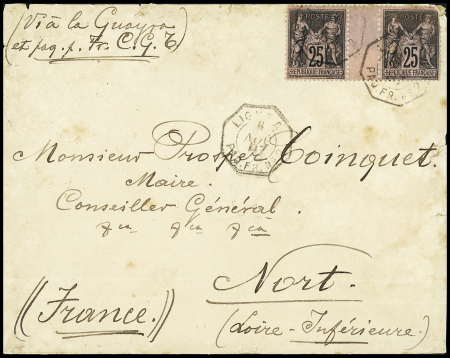 (Viâ la Guayra
et paq. p. Fr. C. G. T)
POSTES
25
REPUBLIQUE FRANÇAISE
POSTES
25
REPUBLIQUE FRANÇAISE
LIGNE
8
PAQ. FR.
PAQ. FR.
Monsieur Prosper Coinquet.
Maire.
Conseiller Général.
((France.))
Nort.
(Loire-Inférieure.)